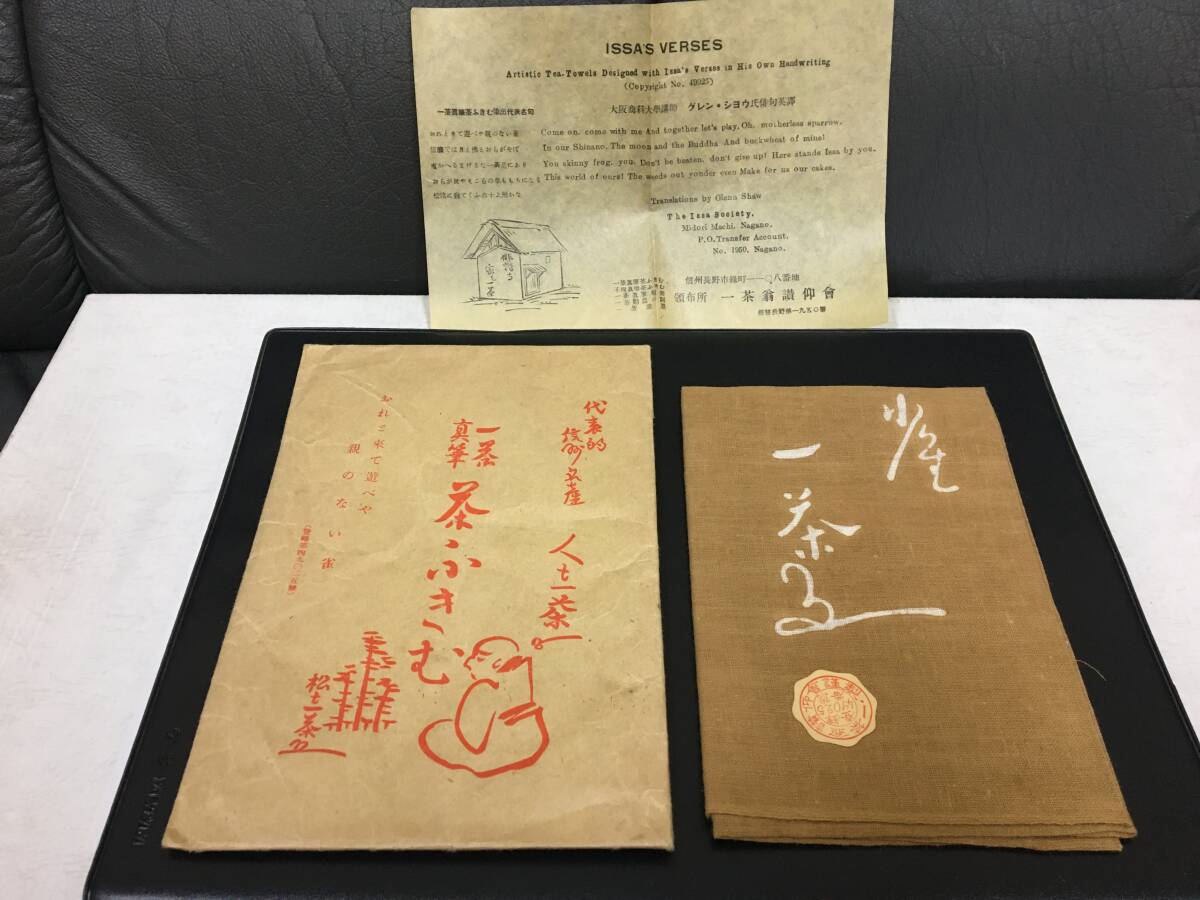 ISSA'S VERSES
Artistic Tea-Towels Designed with Issa's Verses in His Own Handwriting
(Copyright No. 49025)
大阪商科大學講師 グレン・シヨウ氏俳句英譯
Come on, come with me And together let's play, Oh, motherless sparrow.
In our Shinano. The moon and the Buddha And buckwheat of mine!
You skinny frog, you, Don't be beaten, don't give up! Here stands Issa by you.
This world of ours! The weeds out yonder even Make for us our cakes.
Translations by Glenn Shaw
The Issa Society,
Midori Machi, Nagano.
P.O. Transfer Account,
No. 1950, Nagano.
一茶眞筆茶ふきむ染出代表名句
信州長野市緑町一一〇八番地
頒布所 一茶翁讃仰會
振替長野第一九五〇番
代表的
信州名産
人も一茶
一茶
真筆
茶ふきむ
おれと来て遊べや
親のない雀
(登録第四九〇二五號)
松も一茶
雀
一茶